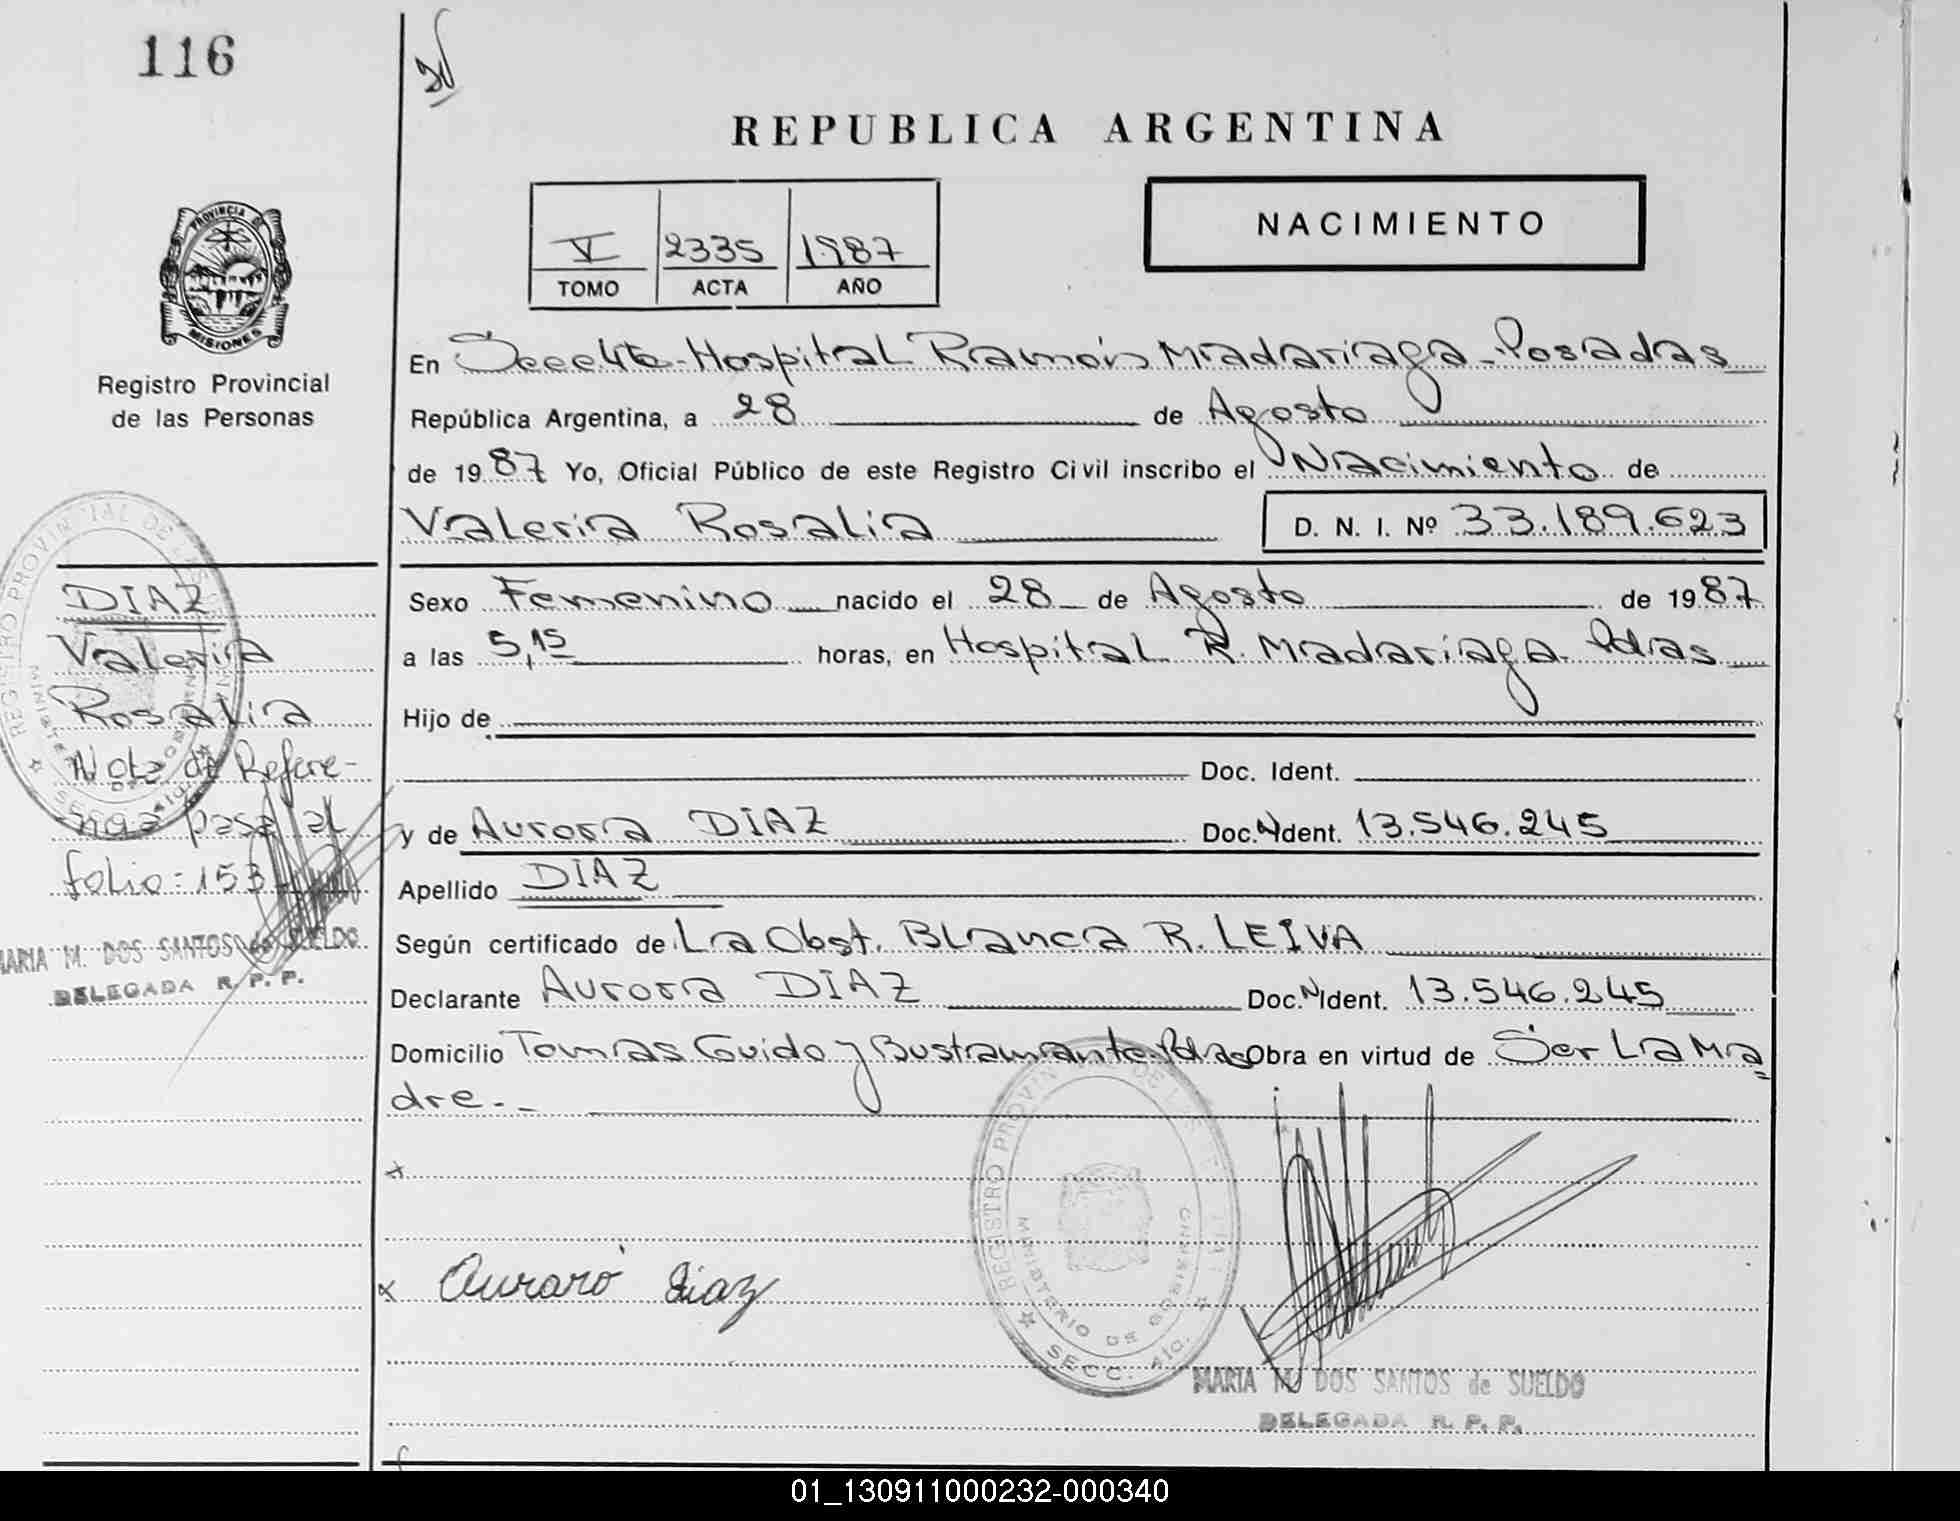 116
REPUBLICA ARGENTINA
V 2335 1987
TOMO ACTA AÑO
NACIMIENTO
PROVINCIA DE
MISIONES
Registro Provincial
de las Personas
En Seccl4ta-Hospital Ramón Madariaga-Posadas
República Argentina, a 28 de Agosto
de 1987 Yo, Oficial Público de este Registro Civil inscribo el Nacimiento de
Valeria Rosalia D. N. I. Nº 33.189.623
Sexo Femenino nacido el 28 de Agosto de 1987
a las 5,15 horas, en Hospital R. Madariaga-Pdas
Hijo de
Doc. Ident.
y de Aurora DIAZ Doc.N Ident. 13.546.245
Apellido DIAZ
Según certificado de La Obst. Blanca R. LEIVA
Declarante Aurora DIAZ Doc.N Ident. 13.546.245
Domicilio Tomas Guido y Bustamante-Pdas Obra en virtud de Ser La Ma=
dre.-
DIAZ
Valeria
Rosalia
Nota de Refere-
ncia pasa al
folio-153
MARIA M. DOS SANTOS de SUELDO
DELEGADA R. P. P.
x
x Auraró Diaz
REGISTRO PROVINCIAL DE LAS
MINISTERIO DE GOBIERNO
SECC. 4ta.
MARIA M. DOS SANTOS de SUELDO
DELEGADA R. P. P.
01_130911000232-000340